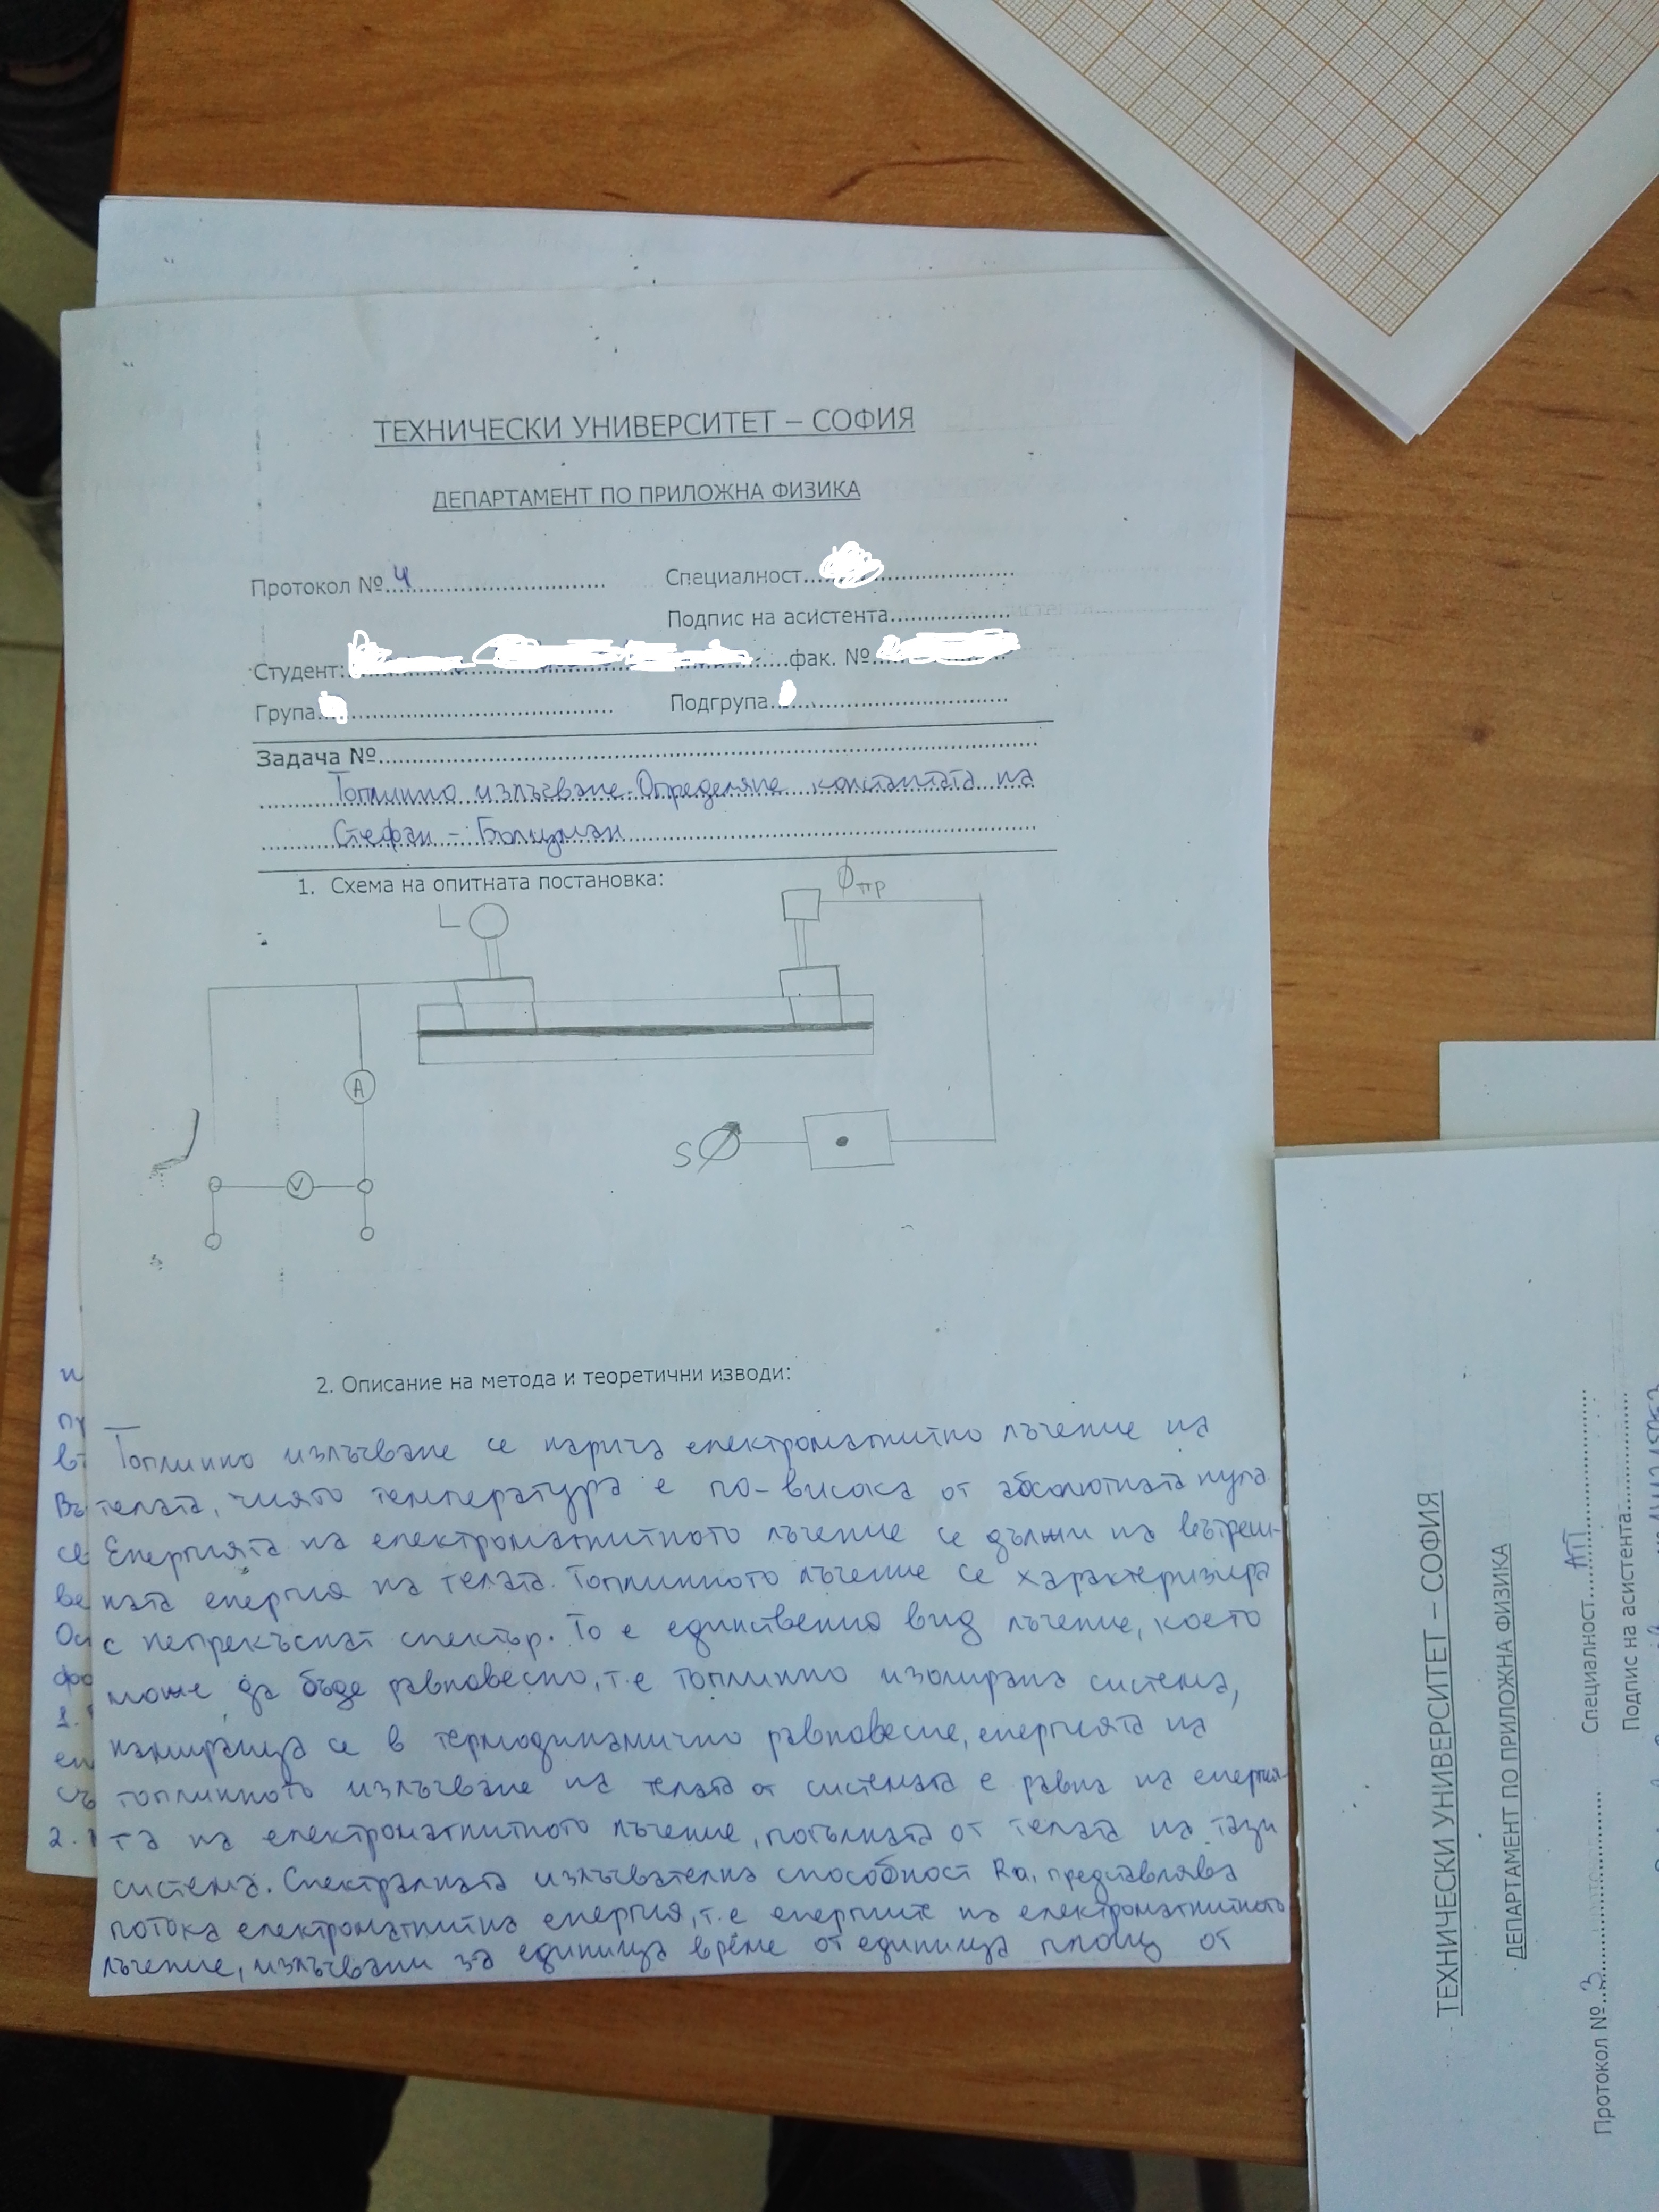 ТЕХНИЧЕСКИ УНИВЕРСИТЕТ – СОФИЯ
ДЕПАРТАМЕНТ ПО ПРИЛОЖНА ФИЗИКА
Протокол №4 Специалност
Подпис на асистента
Студент: фак. №
Група Подгрупа
Задача №
Топлинно излъчване. Определяне константата на
Стефан – Болцман
1. Схема на опитната постановка:
L Фпр
A
S
V
2. Описание на метода и теоретични изводи:
Топлинно излъчване се нарича електромагнитно лъчение на
телата, чиято температура е по-висока от абсолютната нула.
Енергията на електромагнитното лъчение се дължи на вътреш-
ната енергия на телата. Топлинното лъчение се характеризира
с непрекъснат спектър. То е единствения вид лъчение, което
може да бъде равновесно, т.е топлинно изолирана система,
намираща се в термодинамично равновесие, енергията на
топлинното излъчване на телата от системата е равна на енергия-
та на електромагнитното лъчение, погълната от телата на тази
система. Спектралната излъчвателна способност представлява
потока електромагнитна енергия, т.е енергиите на електромагнитното
лъчение, излъчвани за единица време от единица площ от
ТЕХНИЧЕСКИ УНИВЕРСИТЕТ – СОФИЯ
ДЕПАРТАМЕНТ ПО ПРИЛОЖНА ФИЗИКА
Протокол №3 Специалност АП
Подпис на асистента